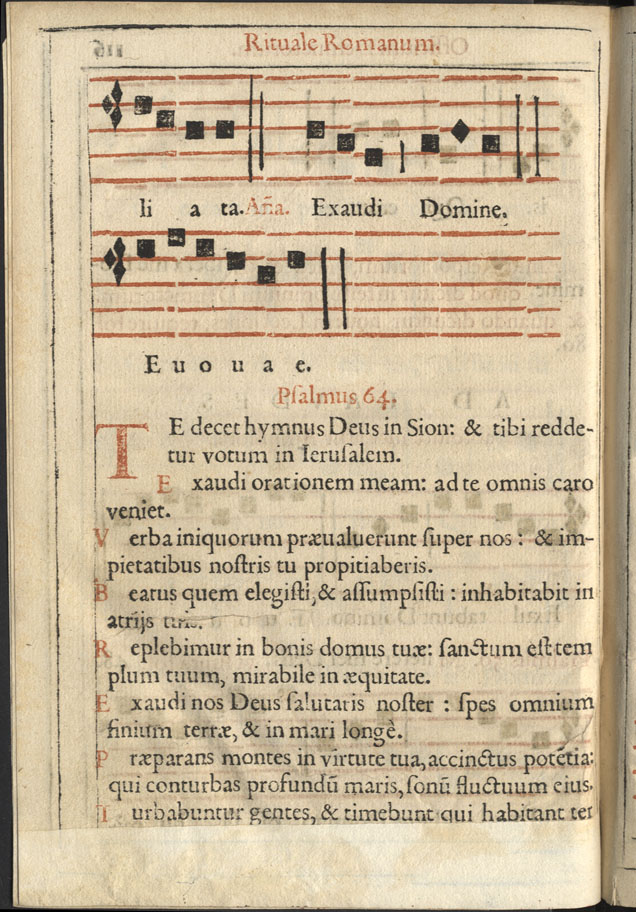 Rituale Romanum.
li a ta. Aña. Exaudi Domine.
E u o u a e.
Pſalmus 64.
TE decet hymnus Deus in Sion: & tibi redde-
tur votum in Ieruſalem.
Exaudi orationem meam: ad te omnis caro
veniet.
Verba iniquorum præualuerunt ſuper nos: & im-
pietatibus noſtris tu propitiaberis.
Beatus quem elegiſti, & aſſumpſiſti: inhabitabit in
atrijs tuis.
Replebimur in bonis domus tuæ: ſanctum eſt tem
plum tuum, mirabile in æquitate.
Exaudi nos Deus ſalutaris noſter: ſpes omnium
finium terræ, & in mari longè.
Præparans montes in virtute tua, accinctus potētia:
qui conturbas profundū maris, ſonū fluctuum eius.
Turbabuntur gentes, & timebunt qui habitant ter